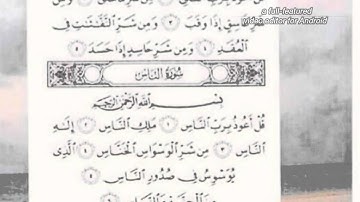 a full-featured
video editor for Android
شَرِّ غَاسِقٍ إِذَا وَقَبَ ٣ وَمِن شَرِّ ٱلنَّفَّٰثَٰتِ فِي
ٱلْعُقَدِ ٤ وَمِن شَرِّ حَاسِدٍ إِذَا حَسَدَ ٥
سُورَةُ النَّاسِ
بِسْمِ ٱللَّهِ ٱلرَّحْمَٰنِ ٱلرَّحِيمِ
قُلْ أَعُوذُ بِرَبِّ ٱلنَّاسِ ١ مَلِكِ ٱلنَّاسِ ٢ إِلَٰهِ
ٱلنَّاسِ ٣ مِن شَرِّ ٱلْوَسْوَاسِ ٱلْخَنَّاسِ ٤ ٱلَّذِي
يُوَسْوِسُ فِي صُدُورِ ٱلنَّاسِ ٥
مِنَ ٱلْجِنَّةِ وَٱلنَّاسِ